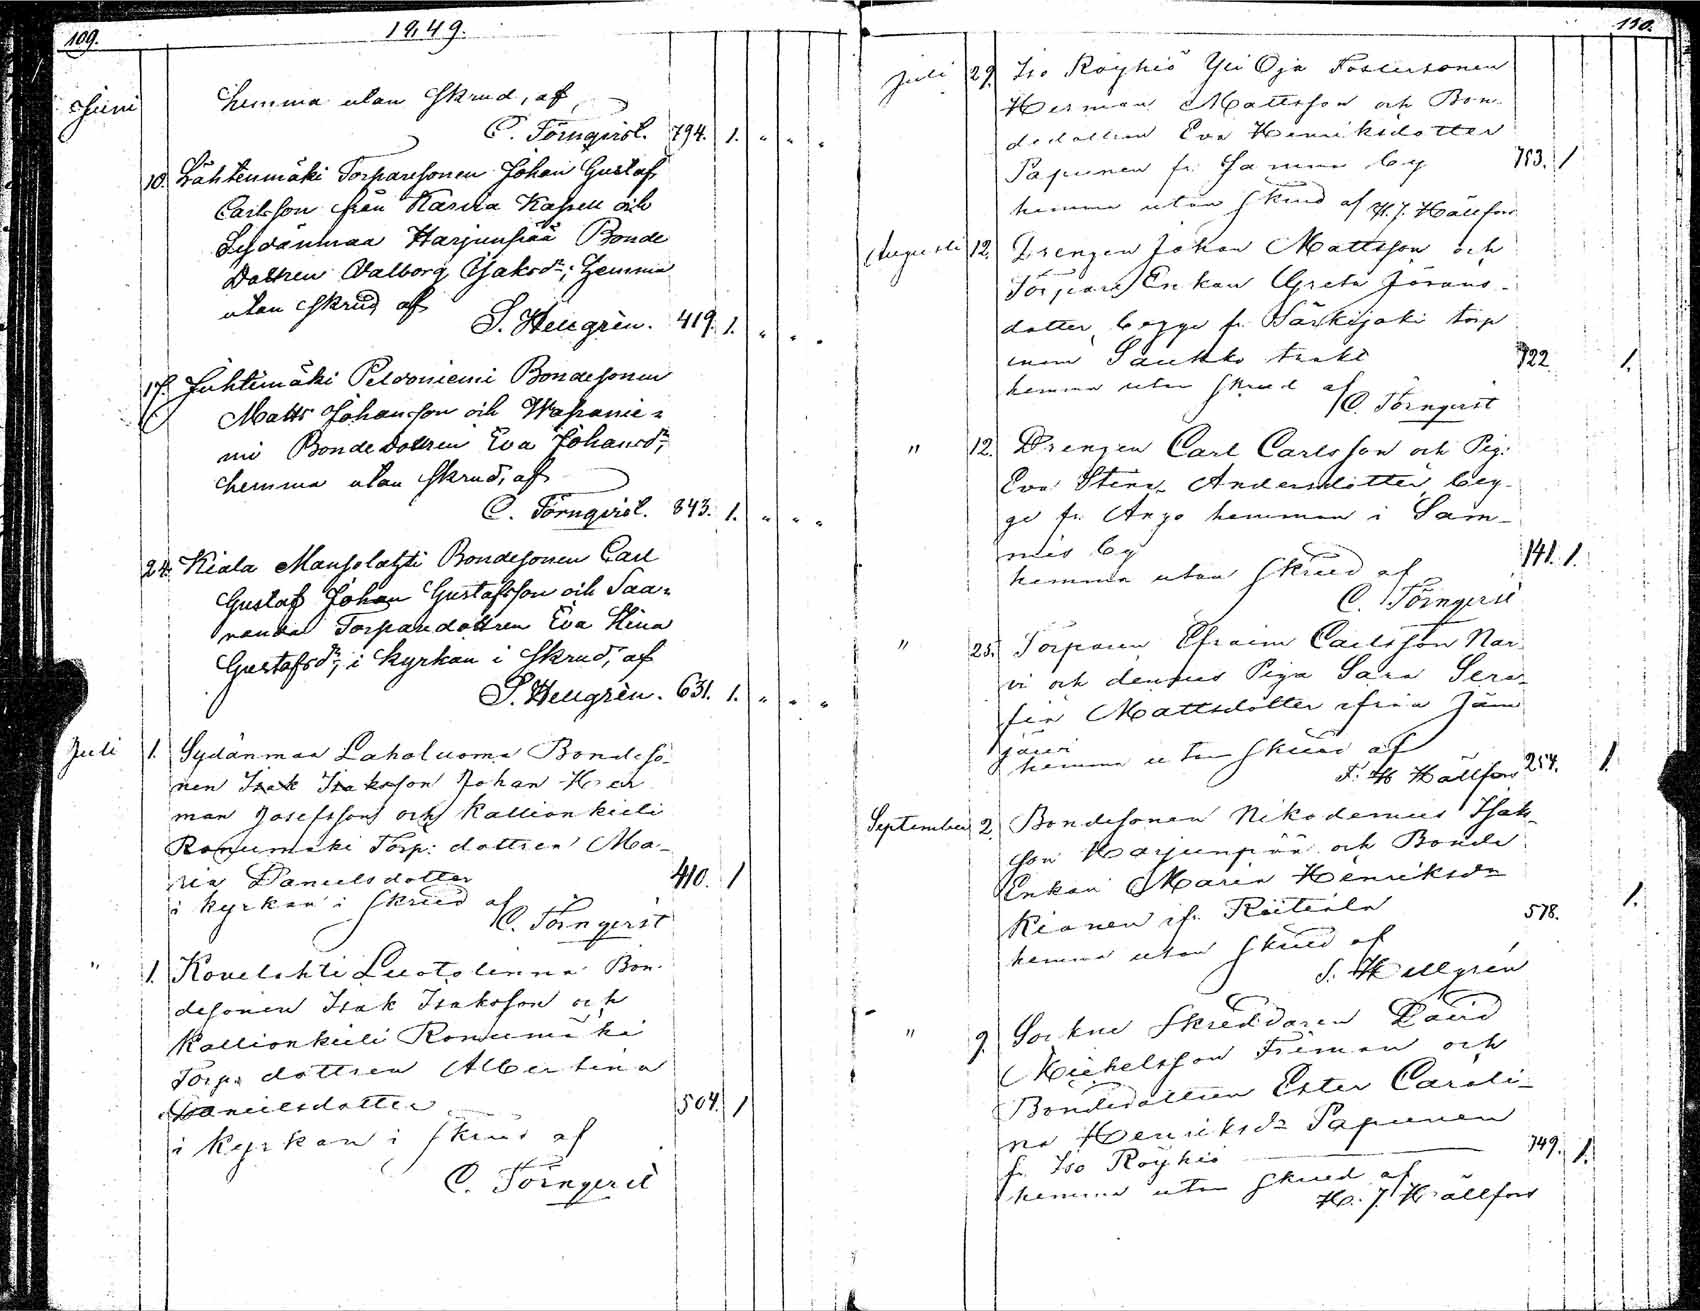 109.
1849.
Juni
hemma utan Skrud, af
C. Törnqvist. 794. 1. " " "
10. Lähtenmäki Torparesonen Johan Gustaf
Carlsson från Karvia Kapell och
Sydänmaa Harjunpää Bonde
Dottren Valborg Isaksdr; hemma
utan Skrud af
S. Hellgrén. 419. 1. " " "
17. Juhtimäki Peldoniemi Bondesonen
Matts Johansson och Wapanie=
mi Bondedottren Eva Johansdr;
hemma utan Skrud, af
C. Törnqvist. 843. 1. " " "
24. Kiala Mansolahti Bondesonen Carl
Gustaf Johan Gustafsson och Saa=
nanda Torparedottren Eva Stina
Gustafsdr; i kyrkan i Skrud, af
S. Hellgrén. 631. 1. " " "
Juli 1. Sydänmaa Laholuoma Bondeso-
nen Isak Isaksson Johan Her
man Josefsson och Kallionkieli
Ronumäki Torp: dottren Ma-
ria Danielsdotter 410. 1
i kyrkan i Skrud af
C. Törnqvist
" 1. Kovelahti Luotolinna Bon-
desonen Isak Isaksson och
Kallionkieli Ronumäki
Torp: dottren Albertina
Danielsdotter 504. 1
i Kyrkan i Skrud af
C. Törnqvist
110.
Juli 29. Iso Röyhiö Yli Oja Fostersonen
Herman Mattsson och Bon-
dedottren Eva Henriksdotter
Papunen fr. Samma by 753. 1
hemma utan Skrud af H. J. Hällfors
Augusti 12. Drengen Johan Mattsson och
Torpare Enkan Greta Jörans-
dotter, begge fr. Särkijoki torp
inom Saukko trakt 722. 1.
hemma utan Skrud af
C. Törnqvist
" 12. Drengen Carl Carlsson och Pig:
Eva Stina Andersdotter, beg-
ge fr. Anjo hemman i Sam-
mis by 141. 1.
hemma utan Skrud af
C. Törnqvist
" 25. Torparen Efraim Carlsson Nar-
vi och dennes Piga Sara Sera-
fia Mattsdotter ifrån Jämi
järvi
hemma utan Skrud af 254. 1.
F. H. Hällfors
September 2. Bondesonen Nikodemus Isaks-
son Harjunpää och Bonde
Enkan Maria Henriksdr
Kianen ifr. Riitiala 578. 1.
hemma utan Skrud af
S. Hellgrén
" 9. Sockne Skreddaren David
Michelsson Friman och
Bondedottren Ester Caroli-
na Henriksdr Papunen
fr. Iso Röyhiö 749. 1.
hemma utan Skrud af
H. J. Hällfors